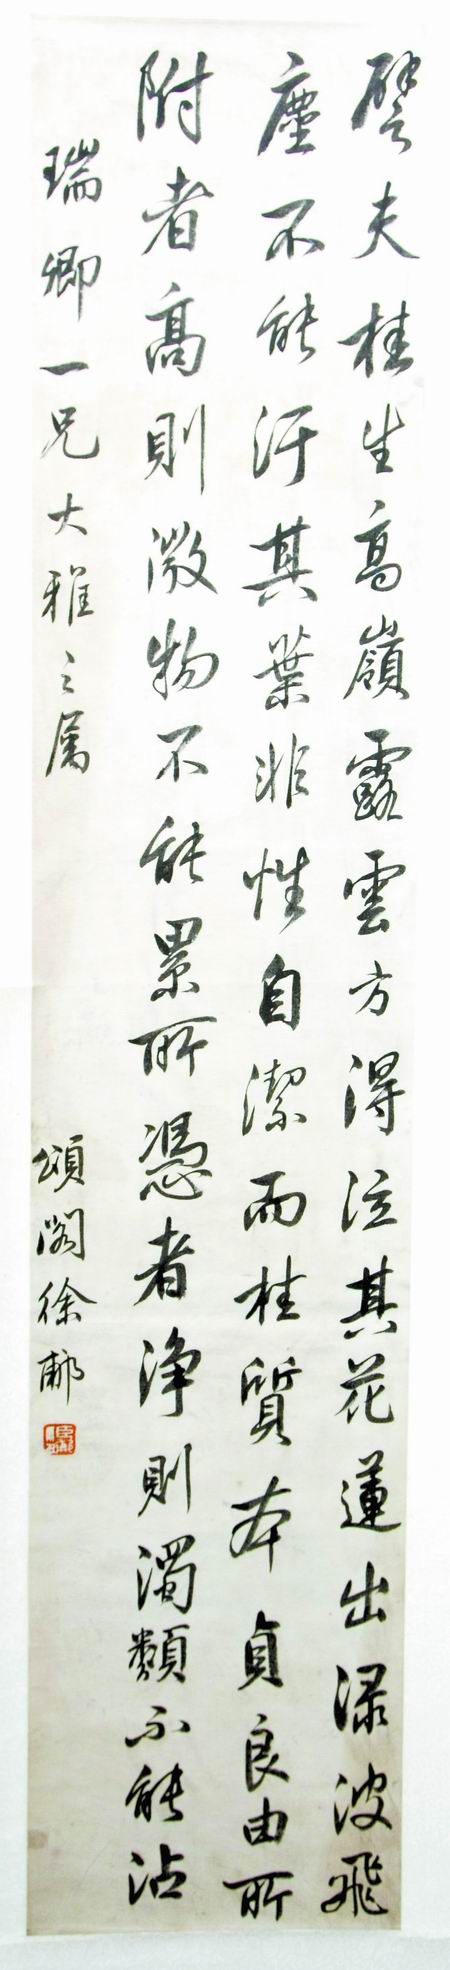 譬夫桂生高嶺露雲方得泣其花蓮出淥波飛
塵不能汙其葉非性自潔而桂質本貞良由所
附者高則微物不能累所憑者淨則濁類不能沾
瑞卿一兄大雅之屬
頌閣徐郙